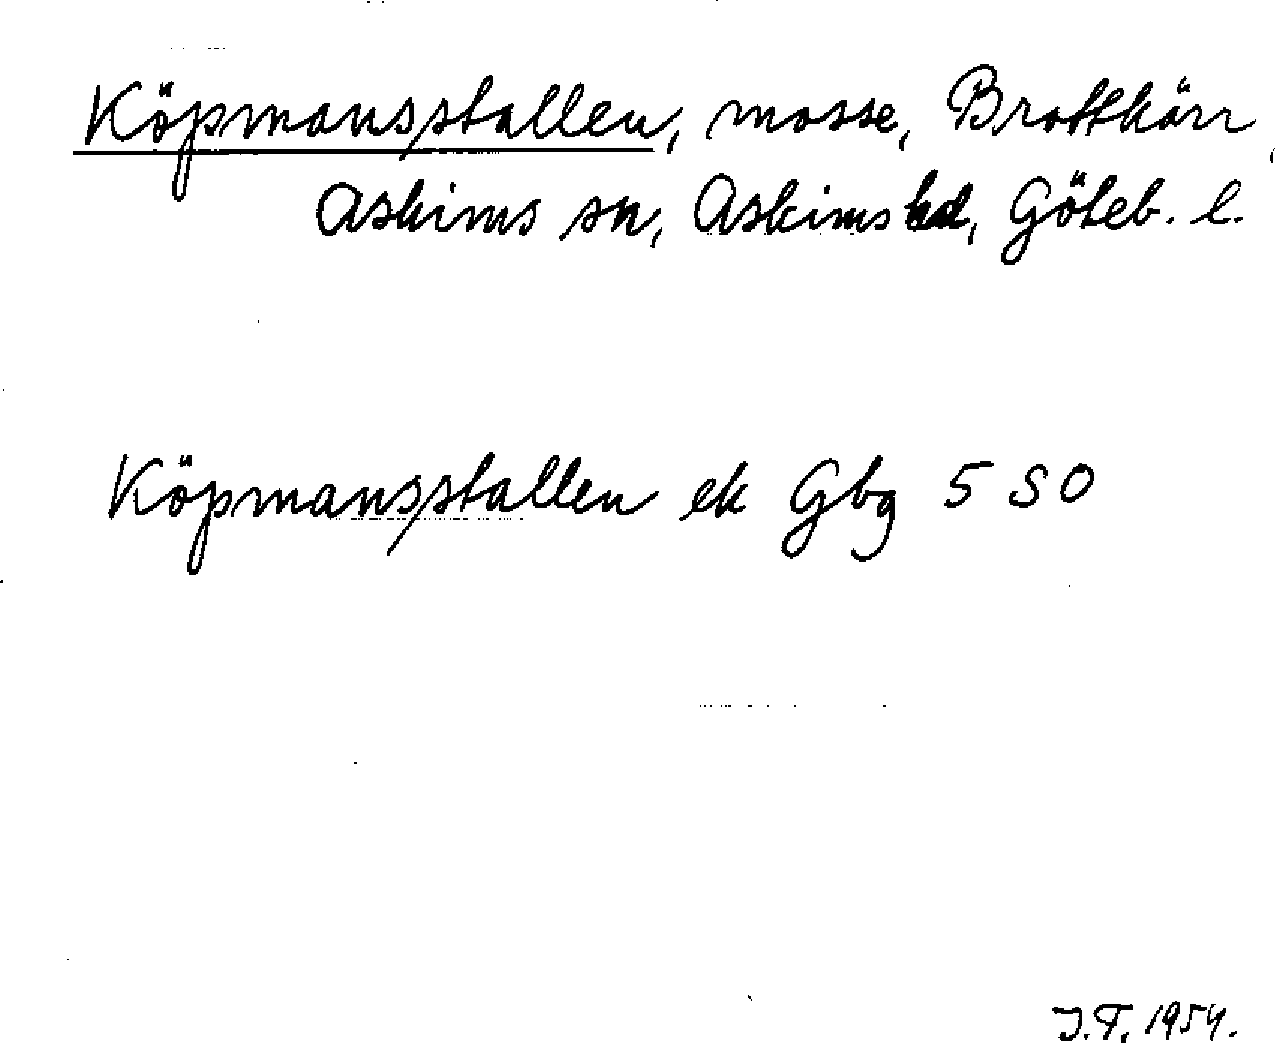 Köpmansstallen, mosse, Brottkärr,
Askims sn, Askims hd, Göteb. l.
Köpmansstallen ek Gbg 5 SO
J.T. 1954.